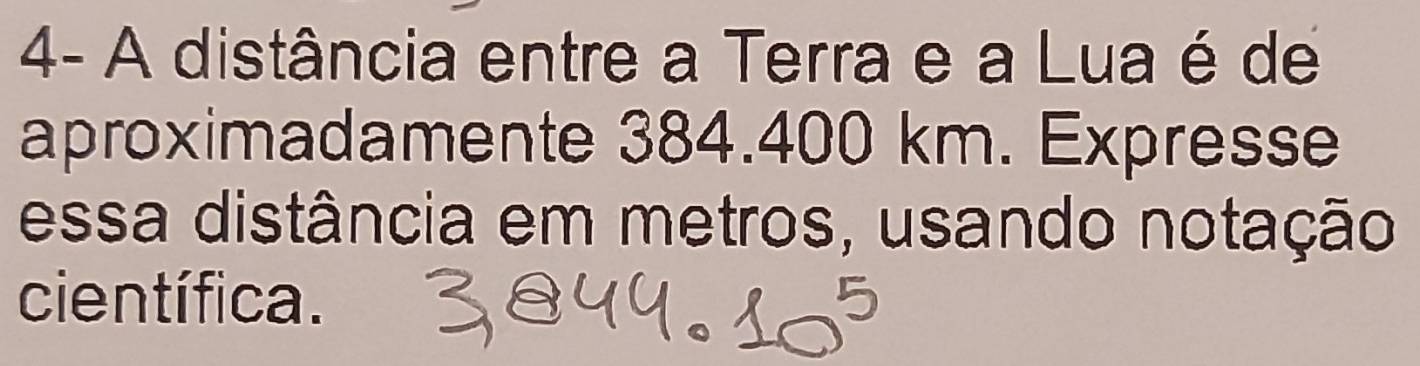 4- A distância entre a Terra e a Lua é de
aproximadamente 384.400 km. Expresse
essa distância em metros, usando notação
científica. 3,844.10⁵